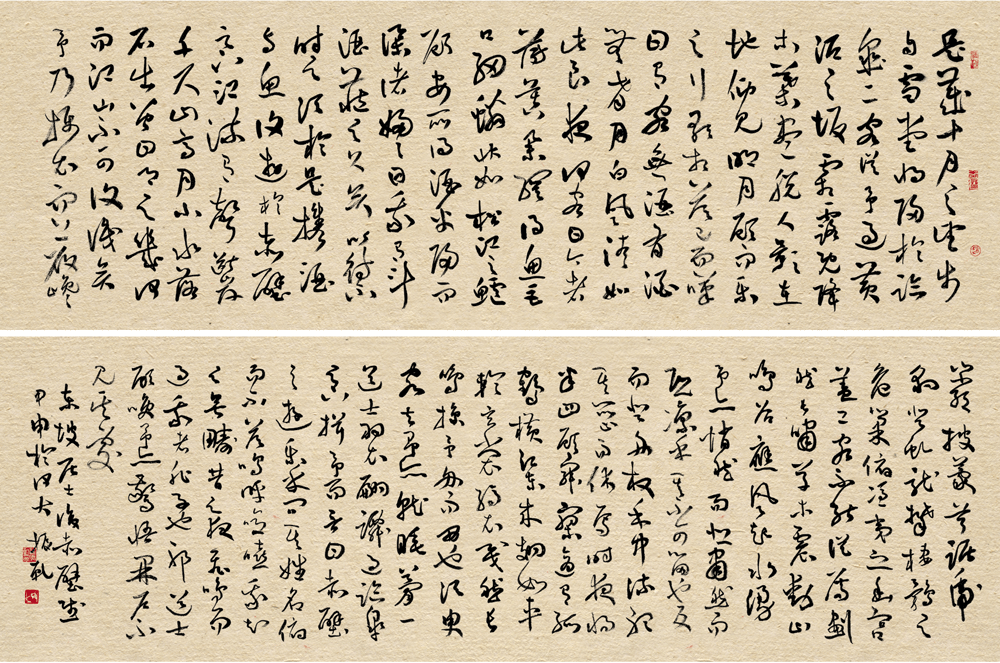 是歲十月之望步
自雪堂將歸於臨
皋二客從予過黃
泥之坂霜露既降
木葉盡脫人影在
地仰見明月顧而樂
之行歌相答已而嘆
曰有客無酒有酒
無肴月白風清如
此良夜何客曰今者
薄暮舉網得魚巨
口細鱗狀如松江之鱸
顧安所得酒乎歸而
謀諸婦婦曰我有斗
酒藏之久矣以待子不
時之須於是攜酒
與魚復遊於赤壁
之下江流有聲斷岸
千尺山高月小水落
石出曾日月之幾何
而江山不可復識矣
予乃攝衣而上履巉
岩披蒙茸踞虎
豹登虬龍攀棲鶻之
危巢俯馮夷之幽宮
蓋二客不能從焉劃
然長嘯草木震動山
鳴谷應風起水湧
予亦悄然而悲肅然而
恐凜乎其不可留也反
而登舟放乎中流聽
其所止而休焉時夜將
半四顧寂寥適有孤
鶴橫江東來翅如車
輪玄裳縞衣戛然長
鳴掠予舟而西也須臾
客去予亦就睡夢一
道士羽衣翩躚過臨皋
之下揖予而言曰赤壁
之遊樂乎問其姓名俯
而不答嗚呼噫嘻我知
之矣疇昔之夜飛鳴而
過我者非子也邪道士
顧笑予亦驚悟開戶不
見其處
東坡居士後赤壁賦
甲申於